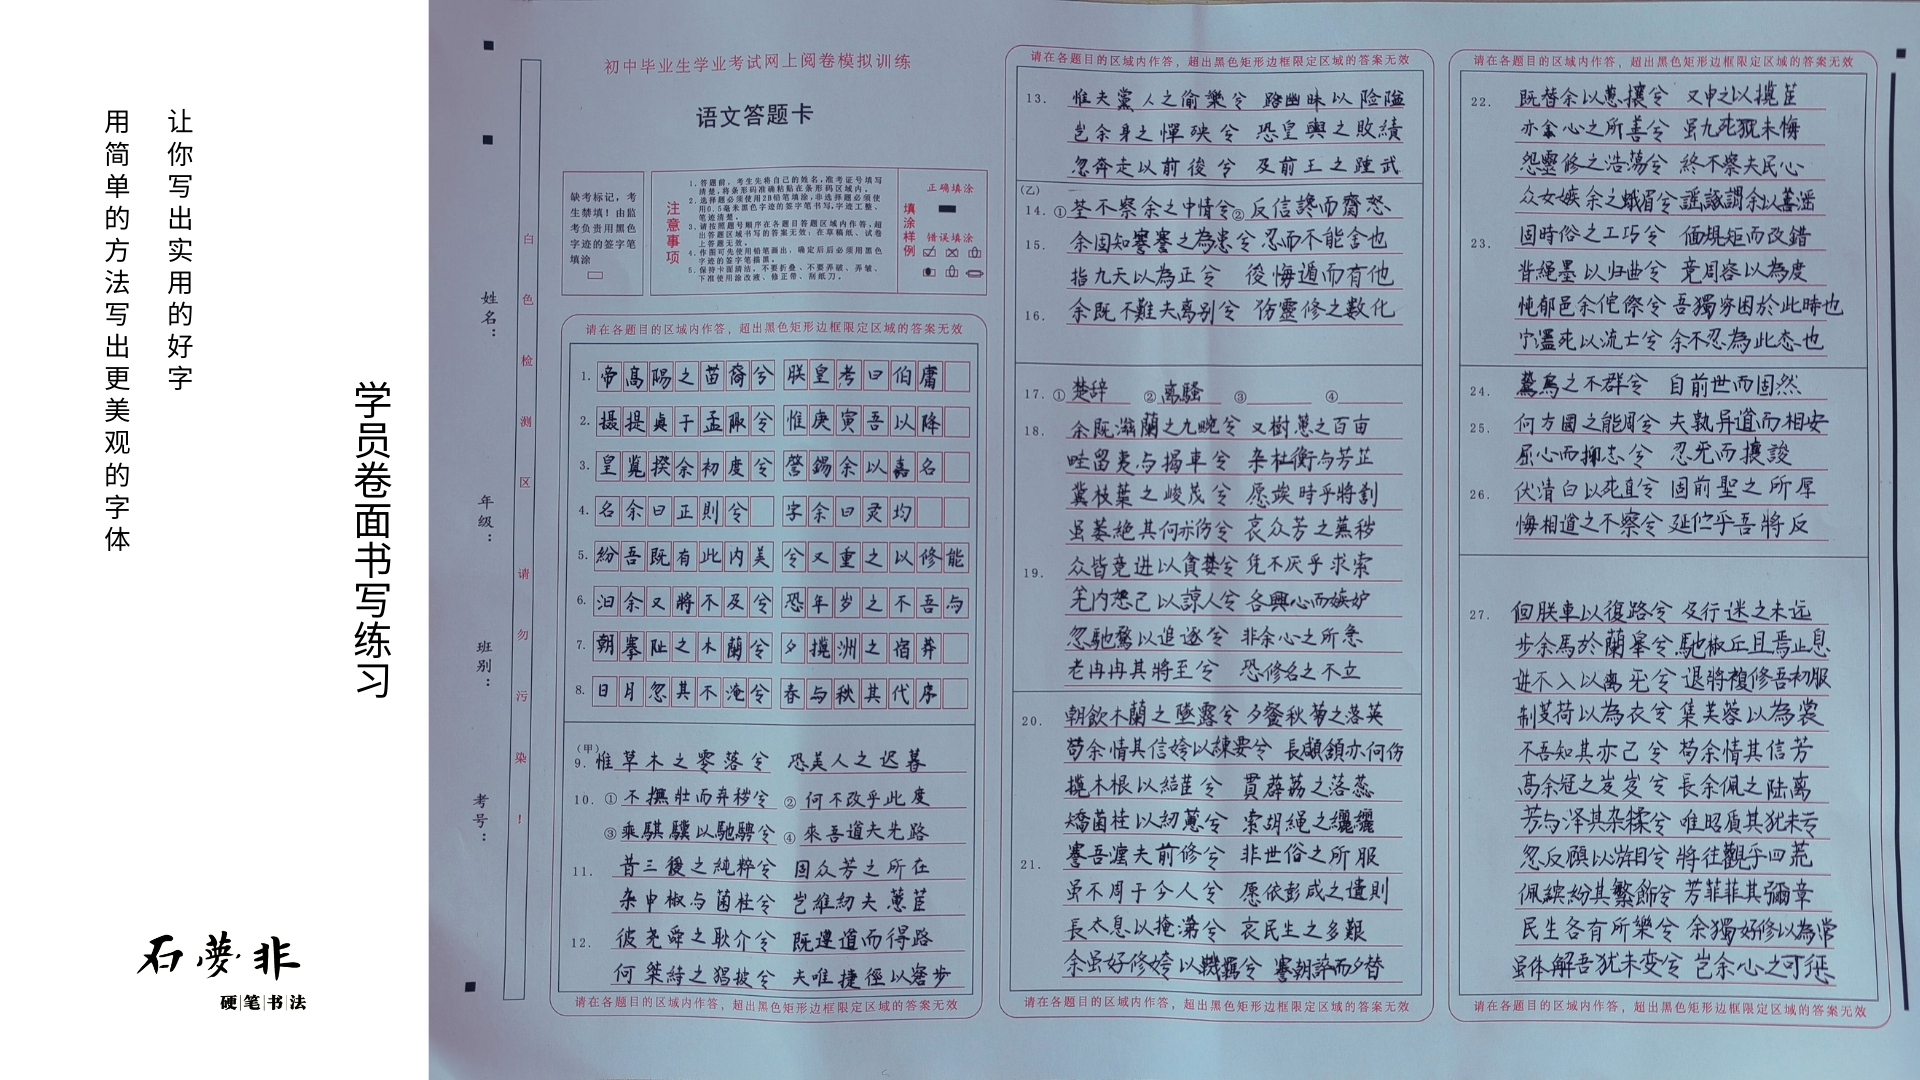 让你写出实用的好字
用简单的方法写出更美观的字体
学员卷面书写练习
石夢非
硬笔书法
白色检测区 请勿污染!
姓名:
年级:
班别:
考号:
初中毕业生学业考试网上阅卷模拟训练
语文答题卡
缺考标记,考
生禁填!由监
考负责用黑色
字迹的签字笔
填涂
注意事项
1. 答题前,考生先将自己的姓名,准考证号填写
清楚,将条形码准确粘贴在条形码区域内。
2. 选择题必须使用2B铅笔填涂,非选择题必须使
用0.5毫米黑色字迹的签字笔书写,字迹工整、
笔迹清楚。
3. 请按照题号顺序在各题目答题区域内作答,超
出答题区域书写的答案无效;在草稿纸、试卷
上答题无效。
4. 作图可先使用铅笔画出,确定后后必须用黑色
字迹的签字笔描黑。
5. 保持卡面清洁,不要折叠、不要弄破、弄皱,
下准使用涂改液、修正带、刮纸刀。
填涂样例
正确填涂
错误填涂
请在各题目的区域内作答,超出黑色矩形边框限定区域的答案无效
1. 帝高陽之苗裔兮 朕皇考曰伯庸
2. 摄提貞于孟陬兮 惟庚寅吾以降
3. 皇覧揆余初度兮 誉錫余以嘉名
4. 名余曰正則兮 字余曰灵均
5. 紛吾既有此内美 兮又重之以修能
6. 汩余又將不及兮 恐年岁之不吾与
7. 朝搴阯之木蘭兮 夕攬洲之宿莽
8. 日月忽其不淹兮 春与秋其代序
(甲)
9. 惟草木之零落兮 恐美人之迟暮
10. ①不撫壯而弃秽兮 ②何不改乎此度
③乘騏驥以馳騁兮 ④來吾道夫先路
11. 昔三後之純粹兮 固众芳之所在
杂申椒与菌桂兮 岂維紉夫蕙茝
12. 彼尧舜之耿介兮 既遵道而得路
何桀紂之猖披兮 夫唯捷徑以窘步
请在各题目的区域内作答,超出黑色矩形边框限定区域的答案无效
请在各题目的区域内作答,超出黑色矩形边框限定区域的答案无效
13. 惟夫黨人之偷樂兮 路幽昧以险隘
岂余身之憚殃兮 恐皇輿之敗績
忽奔走以前後兮 及前王之踵武
(乙)
14. ①荃不察余之中情兮②反信讒而齌怒
15. 余固知謇謇之為患兮 忍而不能舍也
指九天以為正兮 後悔遁而有他
16. 余既不難夫离别兮 伤靈修之數化
17. ①楚辞 ②离騷 ③ ④
18. 余既滋蘭之九畹兮 又樹蕙之百亩
畦留夷与揭車兮 杂杜衡与芳芷
冀枝葉之峻茂兮 愿竢時乎將刈
虽萎絶其何亦伤兮 哀众芳之蕪秽
19. 众皆竞进以貪婪兮 凭不厌乎求索
羌内恕己以諒人兮 各興心而嫉妒
忽馳騖以追逐兮 非余心之所急
老冉冉其將至兮 恐修名之不立
20. 朝飲木蘭之墜露兮 夕餐秋菊之落英
苟余情其信姱以練要兮 長顑頷亦何伤
攬木根以結茝兮 貫薜荔之落蕊
矯菌桂以紉蕙兮 索胡绳之纚纚
21. 謇吾灋夫前修兮 非世俗之所服
虽不周于今人兮 愿依彭咸之遺則
長太息以掩涕兮 哀民生之多艱
余虽好修姱以鞿羁兮 謇朝誶而夕替
请在各题目的区域内作答,超出黑色矩形边框限定区域的答案无效
请在各题目的区域内作答,超出黑色矩形边框限定区域的答案无效
22. 既替余以蕙攘兮 又申之以攬茝
亦余心之所善兮 虽九死犹未悔
怨靈修之浩荡兮 終不察夫民心
众女嫉余之蛾眉兮 謠諑謂余以善滛
23. 固時俗之工巧兮 偭規矩而改錯
背繩墨以归曲兮 竞周容以為度
忳郁邑余侘傺兮 吾獨穷困於此時也
宁溘死以流亡兮 余不忍為此态也
24. 鷙鳥之不群兮 自前世而固然
25. 何方圜之能周兮 夫孰异道而相安
屈心而抑志兮 忍尤而攘詬
26. 伏清白以死直兮 固前聖之所厚
悔相道之不察兮 延伫乎吾將反
27. 回朕車以復路兮 及行迷之未远
步余馬於蘭皋兮 馳椒丘且焉止息
进不入以离尤兮 退將複修吾初服
制芰荷以為衣兮 集芙蓉以為裳
不吾知其亦已兮 苟余情其信芳
高余冠之岌岌兮 長余佩之陆离
芳与泽其杂糅兮 唯昭质其犹未亏
忽反顧以游目兮 將往觀乎四荒
佩繽紛其繁飾兮 芳菲菲其彌章
民生各有所樂兮 余獨好修以為常
虽体解吾犹未变兮 岂余心之可惩
请在各题目的区域内作答,超出黑色矩形边框限定区域的答案无效